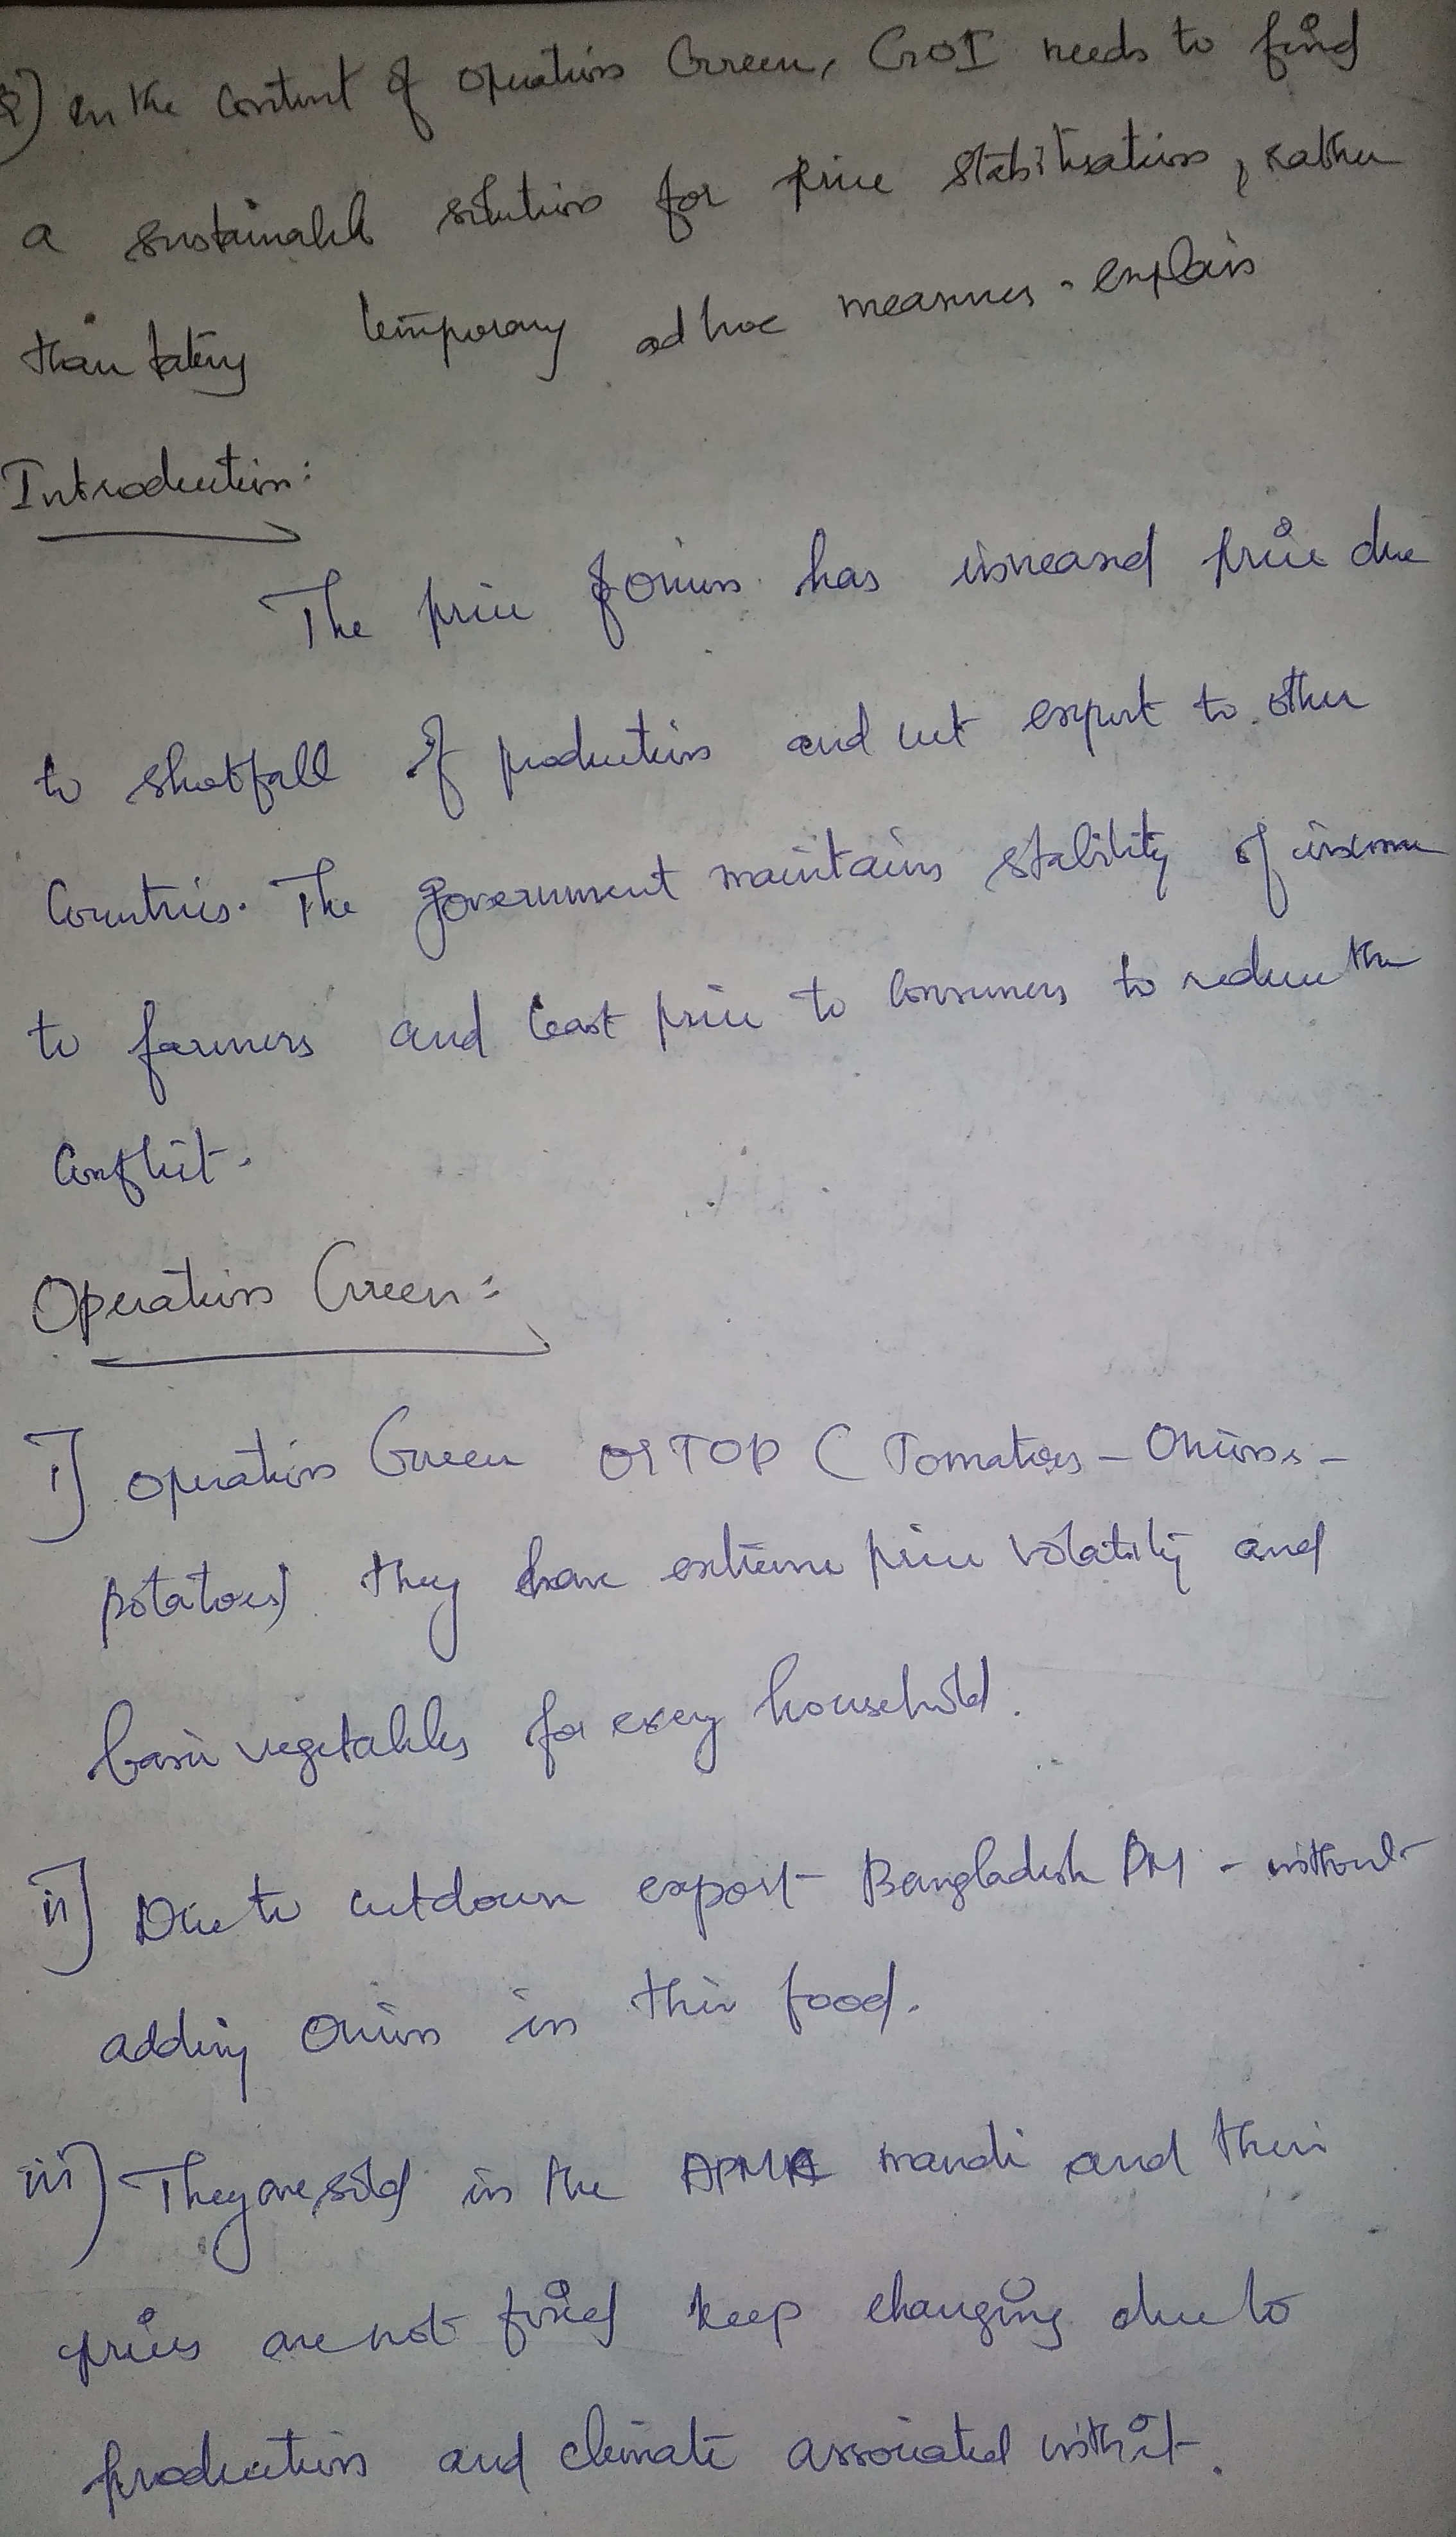 Q) In the Context of Operation Green, GOI needs to find
a sustainable solution for price stabilisation, rather
than taking temporary ad hoc measures - explain
Introduction:
The price of onion has increased price due
to shotfall of production and cut export to other
Countries. The government maintains stability of income
to farmers and least price to consumers to reduce the
Conflict.
Operation Green:
i) Operation Green or TOP (Tomatoes - Onions -
potatoes) they have extreme price volatility and
basic vegetables for every household.
ii) Due to cutdown export Bangladesh PM - without
adding Onion in their food.
iii) They are sold in the APMC mandi and their
prices are not fixed keep changing due to
production and climate associated with it.